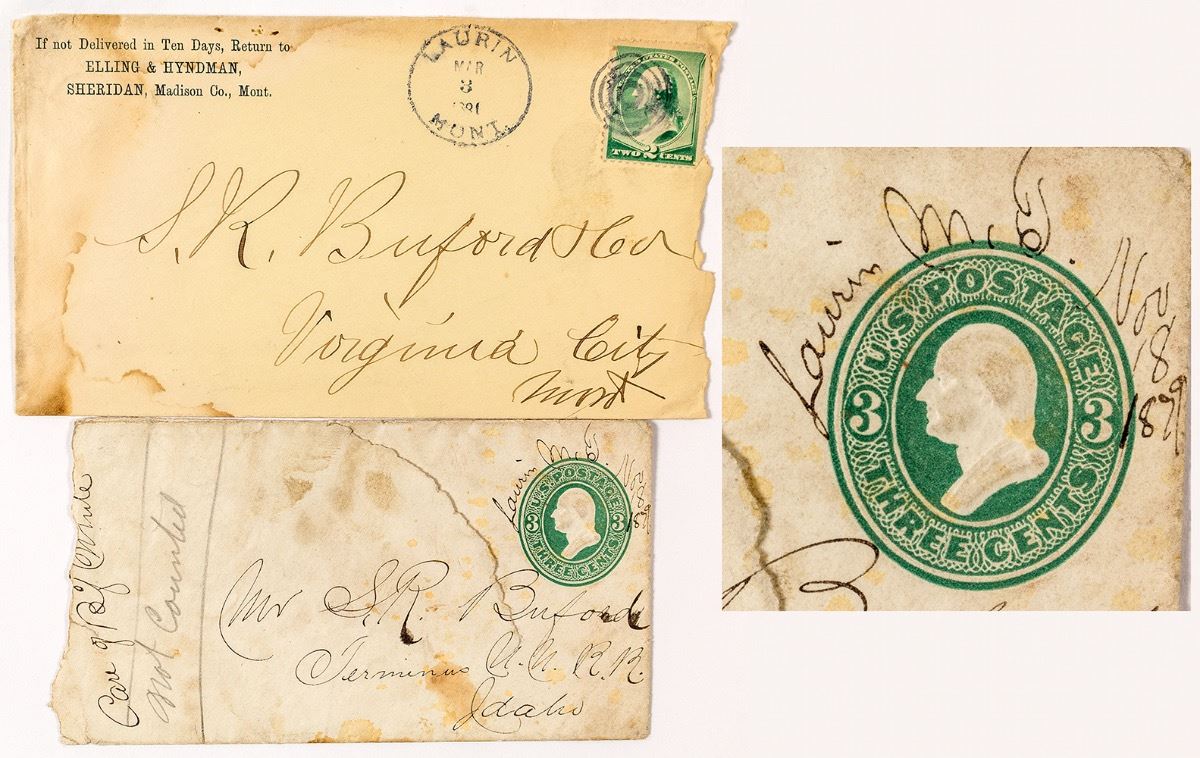 If not Delivered in Ten Days, Return to
ELLING & HYNDMAN,
SHERIDAN, Madison Co., Mont.
LAURIN
MAR
3
MONT.
UNITED STATES POSTAGE
TWO 2 CENTS
S. R. Buford & Co
Virginia City
Mont
Care of
Not Counted
Laurin M. T.
Nov
18
1879
U.S. POSTAGE
3 3
THREE CENTS
Mr S. R. Buford
Terminus U. N. R. R.
Idaho
Laurin M. T.
Nov
18
1879
U.S. POSTAGE
3 3
THREE CENTS